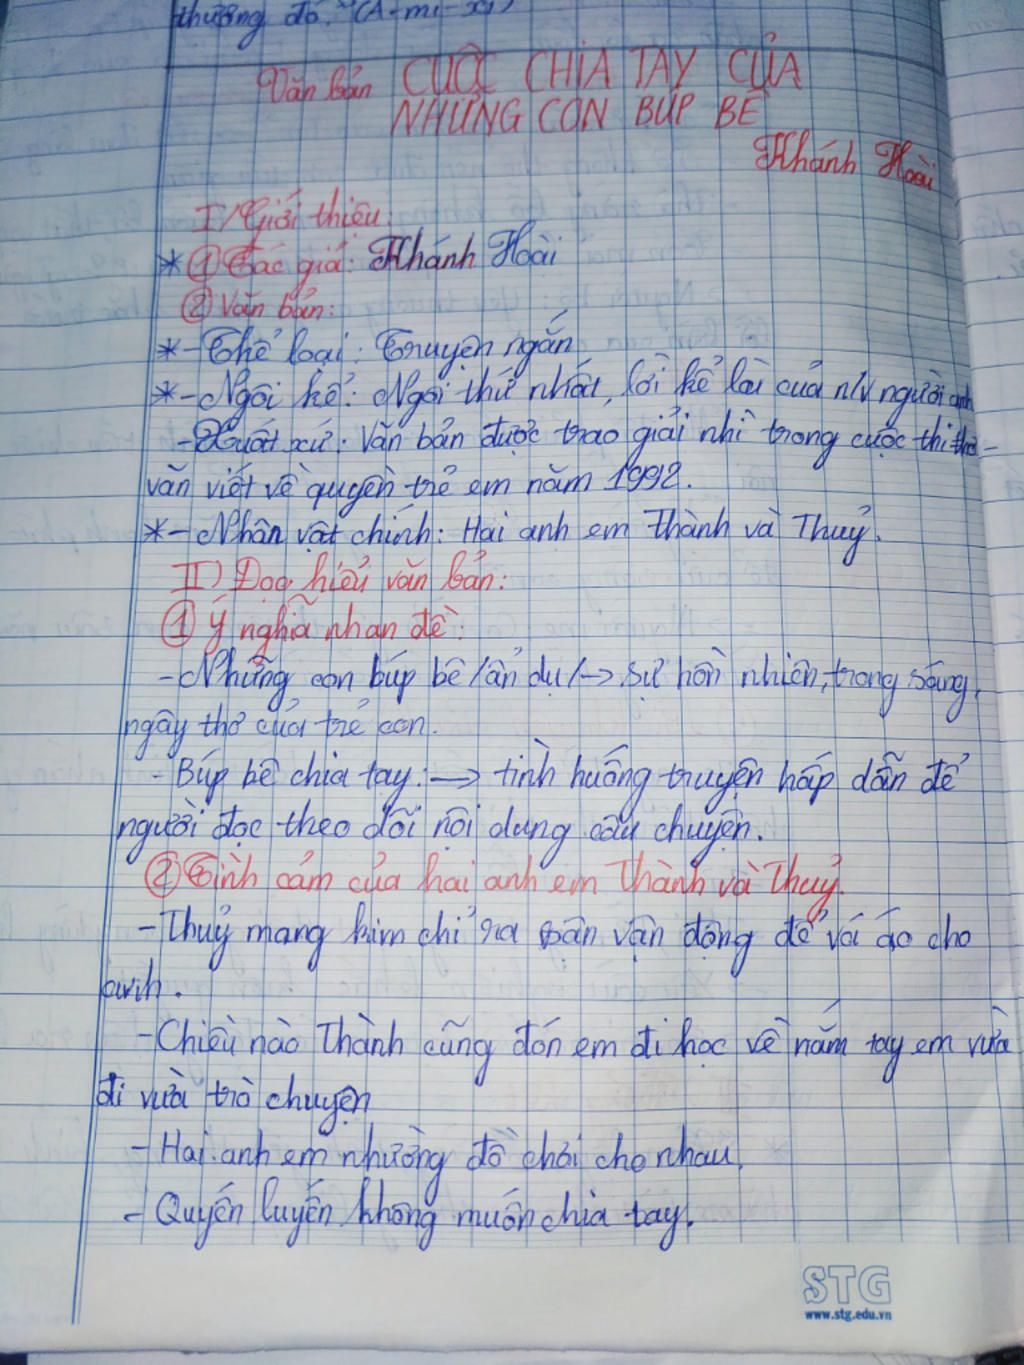 thương đó. (A-mi-xi)
Văn bản CUỘC CHIA TAY CỦA
NHỮNG CON BÚP BÊ
Khánh Hoài
I/ Giới thiệu:
* ① Tác giả: Khánh Hoài
② Văn bản:
* - Thể loại: Truyện ngắn
* - Ngôi kể: Ngôi thứ nhất, lời kể là của n/v người anh
- Xuất xứ: Văn bản được trao giải nhì trong cuộc thi thơ -
văn viết về quyền trẻ em năm 1992.
* - Nhân vật chính: Hai anh em Thành và Thuỷ.
II) Đọc hiểu văn bản:
① Ý nghĩa nhan đề:
- Những con búp bê /ẩn dụ/ → sự hồn nhiên, trong sáng,
ngây thơ của trẻ con.
- Búp bê chia tay: → tình huống truyện hấp dẫn để
người đọc theo dõi nội dung câu chuyện.
② Tình cảm của hai anh em Thành và Thuỷ.
- Thuỷ mang kim chỉ ra sân vận động để vá áo cho
anh.
- Chiều nào Thành cũng đón em đi học về nắm tay em vừa
đi vừa trò chuyện
- Hai anh em nhường đồ chơi cho nhau.
- Quyến luyến không muốn chia tay.
STG
www.stg.edu.vn